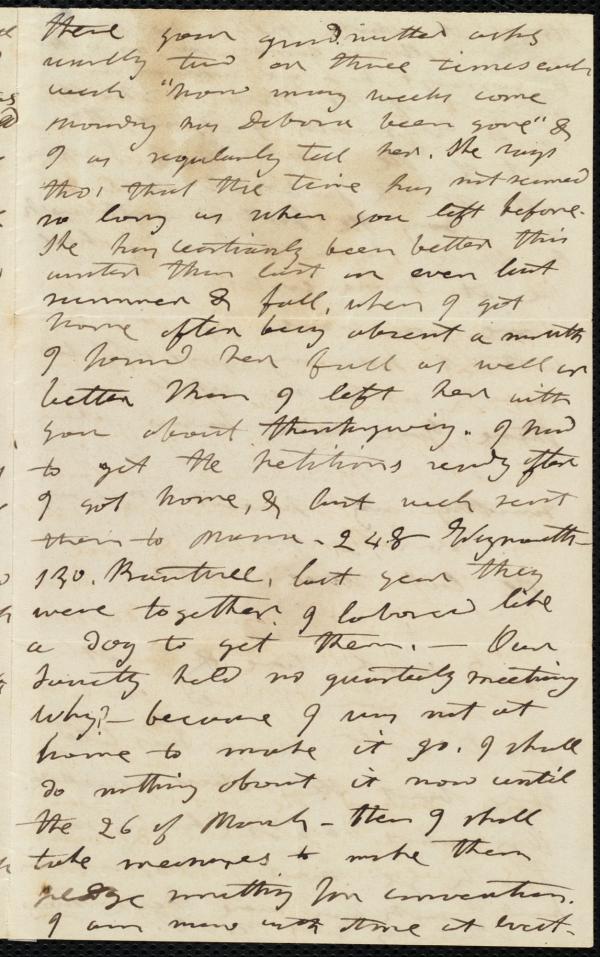 Here your grandmother asks
usually two or three times each
week "how many weeks come
monday has Debora been gone" &
I as regularly tell her. She says
tho' that the time has not seemed
so long as when you left before.
She has certainly been better this
winter than last or even last
summer & fall, when I got
home after being absent a month
I found her full as well or
better than I left her with
you about thanksgiving. I had
to get the petitions ready after
I got home, & last week sent
them to 248 Weymouth
130. Braintree, last year they
were together. I labored like
a dog to get them. — Our
Society held no quarterly meeting
Why? — because I was not at
home to make it go. I shall
do nothing about it now until
the 26 of March - then I shall
take measures to make them
pledge something for convention.
I am now at